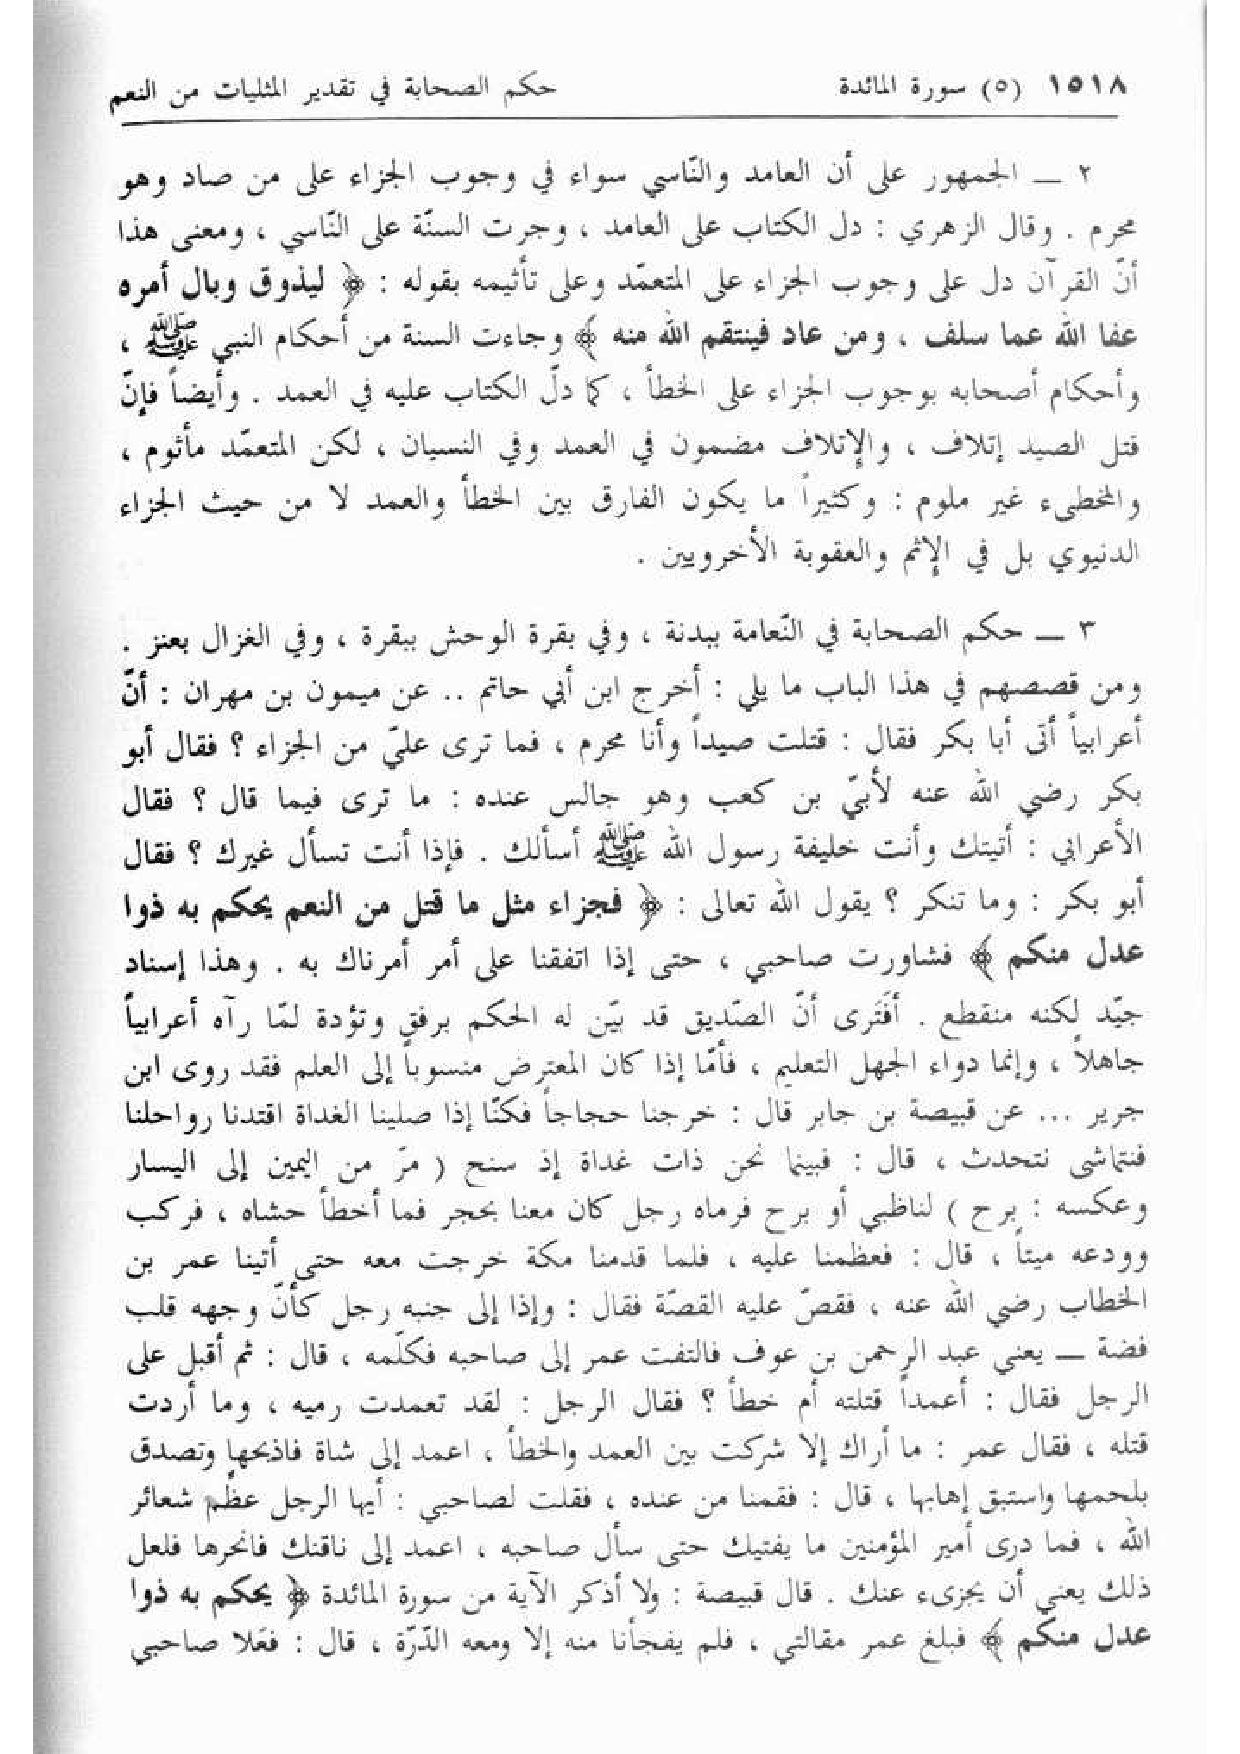 ١٥١٨ (٥) سورة المائدة حكم الصحابة في تقدير المثليات من النعم
٢ — الجمهور على أن العامد والنّاسي سواء في وجوب الجزاء على من صاد وهو
محرم . وقال الزهري : دل الكتاب على العامد ، وجرت السنّة على النّاسي ، ومعنى هذا
أنّ القرآن دل على وجوب الجزاء على المتعمّد وعلى تأثيمه بقوله : ﴿ ليذوق وبال أمره
عفا الله عما سلف ، ومن عاد فينتقم الله منه ﴾ وجاءت السنة من أحكام النبي ﷺ ،
وأحكام أصحابه بوجوب الجزاء على الخطأ ، كما دلّ الكتاب عليه في العمد . وأيضاً فإنّ
قتل الصيد إتلاف ، والإتلاف مضمون في العمد وفي النسيان ، لكن المتعمّد مأثوم ،
والمخطىء غير ملوم : وكثيراً ما يكون الفارق بين الخطأ والعمد لا من حيث الجزاء
الدنيوي بل في الإثم والعقوبة الأخرويين .
٣ — حكم الصحابة في النّعامة ببدنة ، وفي بقرة الوحش ببقرة ، وفي الغزال بعنز .
ومن قصصهم في هذا الباب ما يلي : أخرج ابن أبي حاتم .. عن ميمون بن مهران : أنّ
أعرابياً أتى أبا بكر فقال : قتلت صيداً وأنا محرم ، فما ترى عليّ من الجزاء ؟ فقال أبو
بكر رضي الله عنه لأبيّ بن كعب وهو جالس عنده : ما ترى فيما قال ؟ فقال
الأعرابي : أتيتك وأنت خليفة رسول الله ﷺ أسألك . فإذا أنت تسأل غيرك ؟ فقال
أبو بكر : وما تنكر ؟ يقول الله تعالى : ﴿ فجزاء مثل ما قتل من النعم يحكم به ذوا
عدل منكم ﴾ فشاورت صاحبي ، حتى إذا اتفقنا على أمر أمرناك به . وهذا إسناد
جيّد لكنه منقطع . أفَتَرى أنّ الصّديق قد بيّن له الحكم برفق وتؤدة لمّا رآه أعرابياً
جاهلاً ، وإنما دواء الجهل التعليم ، فأمّا إذا كان المعترض منسوباً إلى العلم فقد روى ابن
جرير ... عن قبيصة بن جابر قال : خرجنا حجاجاً فكنّا إذا صلينا الغداة اقتدنا رواحلنا
فنتماشى نتحدث ، قال : فبينما نحن ذات غداة إذ سنح ( مرّ من اليمين إلى اليسار
وعكسه : برح ) لناظبي أو برح فرماه رجل كان معنا بحجر فما أخطأ حشاه ، فركب
وودعه ميتاً ، قال : فعظمنا عليه ، فلما قدمنا مكة خرجت معه حتى أتينا عمر بن
الخطاب رضي الله عنه ، فقصّ عليه القصّة فقال : وإذا إلى جنبه رجل كأنّ وجهه قلب
فضة — يعني عبد الرحمن بن عوف فالتفت عمر إلى صاحبه فكلّمه ، قال : ثم أقبل على
الرجل فقال : أعمداً قتلته أم خطأ ؟ فقال الرجل : لقد تعمدت رميه ، وما أردت
قتله ، فقال عمر : ما أراك إلا شركت بين العمد والخطأ ، اعمد إلى شاة فاذبحها وتصدق
بلحمها واستبق إهابها ، قال : فقمنا من عنده ، فقلت لصاحبي : أيها الرجل عظّم شعائر
الله ، فما درى أمير المؤمنين ما يفتيك حتى سأل صاحبه ، اعمد إلى ناقتك فانحرها فلعل
ذلك يعني أن يجزىء عنك . قال قبيصة : ولا أذكر الآية من سورة المائدة ﴿ يحكم به ذوا
عدل منكم ﴾ فبلغ عمر مقالتي ، فلم يفجأنا منه إلا ومعه الدّرّة ، قال : فعَلا صاحبي